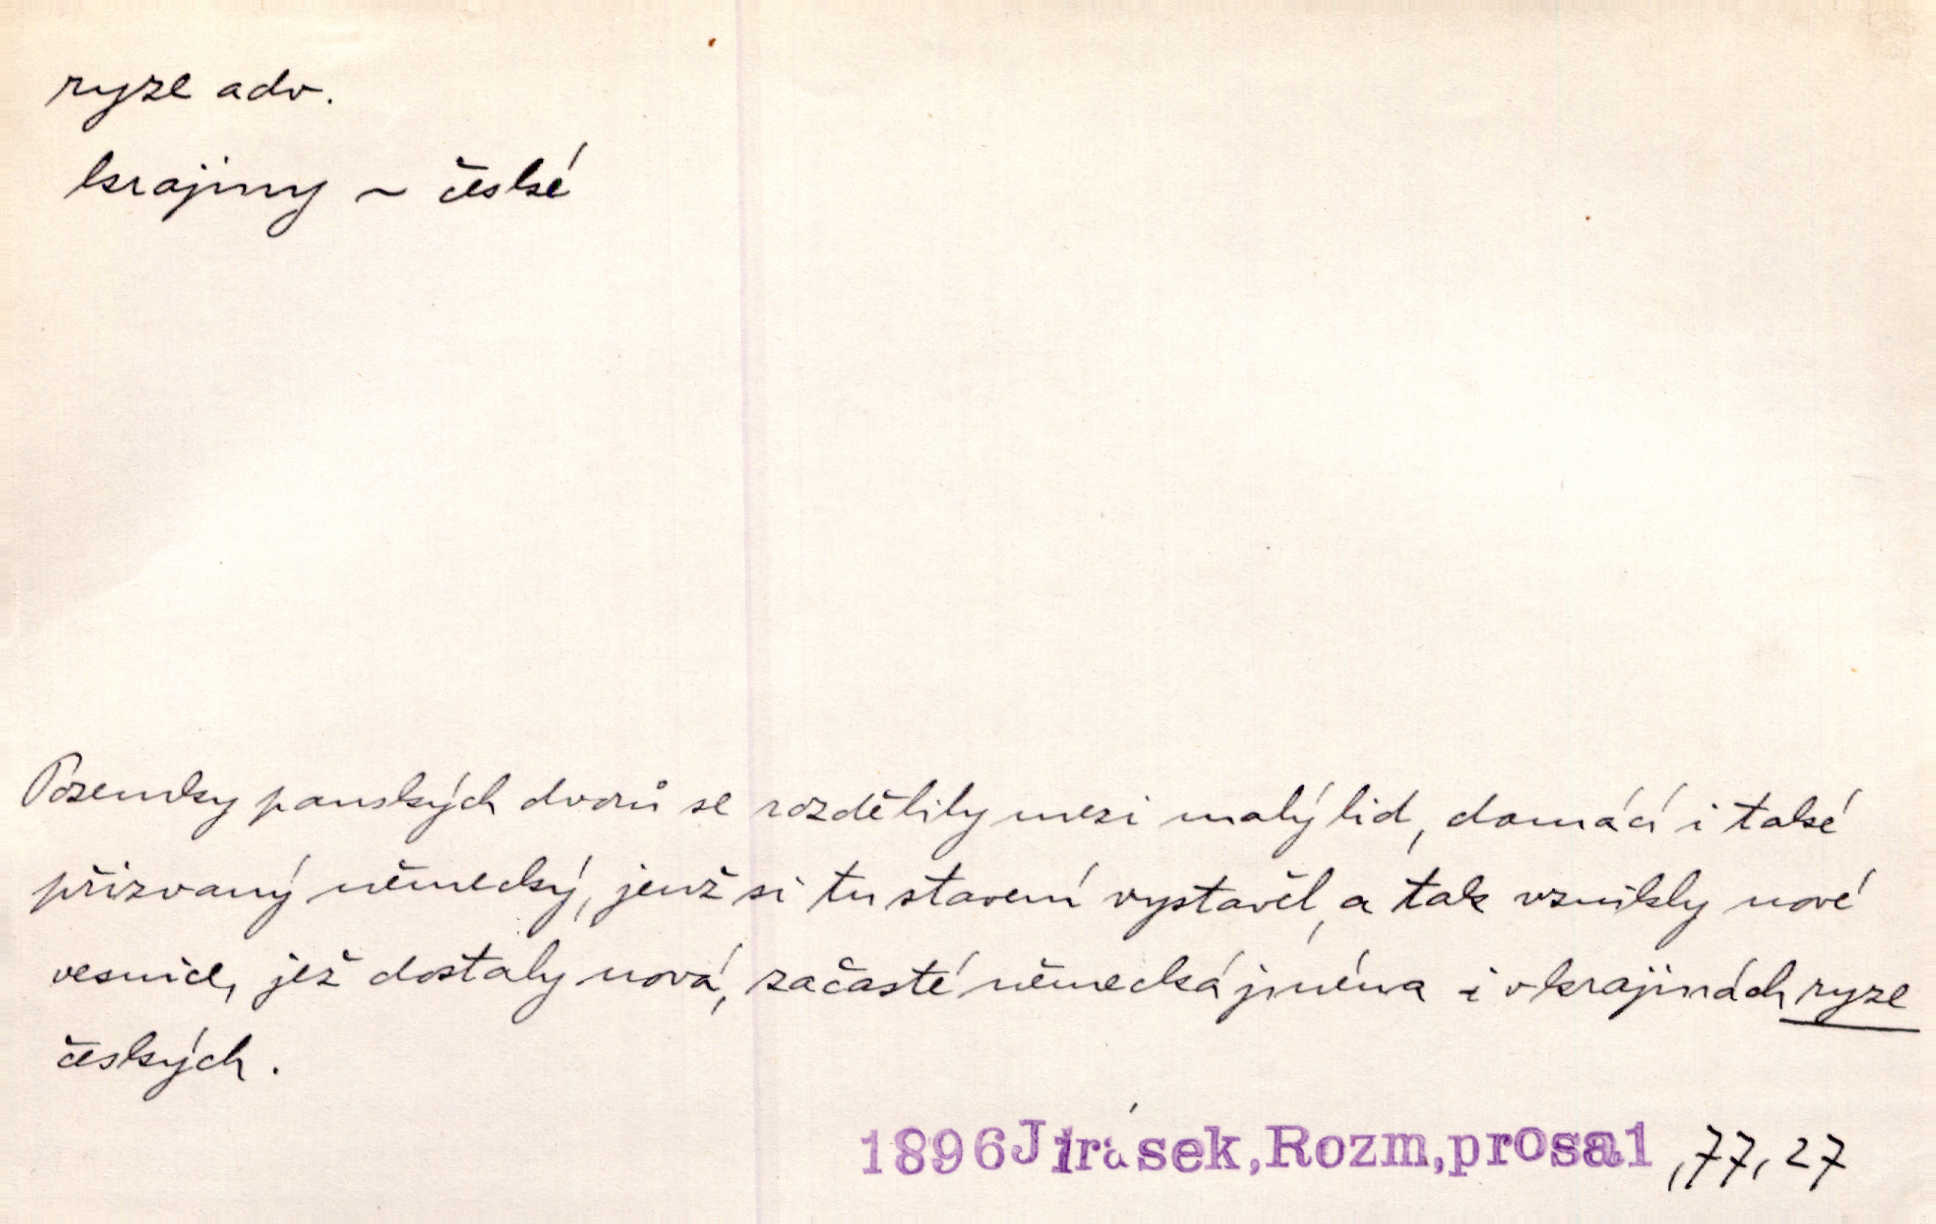 ryze adv.
krajiny ~ české
Pozemky panských dvorů se rozdělily mezi malý lid, domácí i také
přizvaný německý, jenž si tu stavení vystavěl, a tak vznikly nové
vesnice, jež dostaly nová, začasté německá jména i v krajinách ryze
českých.
1896 Jirásek, Rozm, prosa1, 77, 27